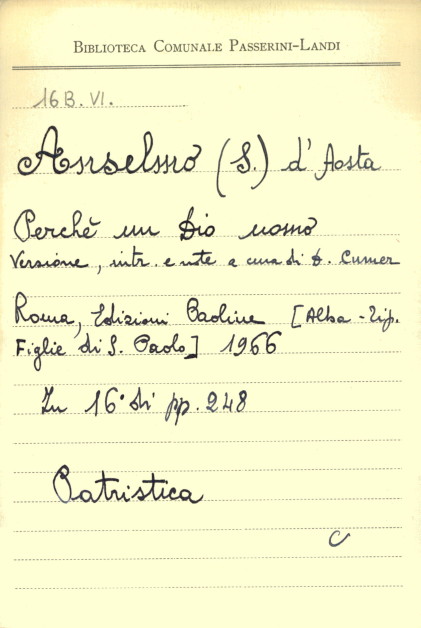 BIBLIOTECA COMUNALE PASSERINI-LANDI
16 B. VI.
Anselmo (S.) d'Aosta
Perchè un Dio uomo
Versione, intr. e note a cura di D. Cumer
Roma, Edizioni Paoline [Alba - Tip.
Figlie di S. Paolo] 1966
In 16° di pp. 248
Patristica
C